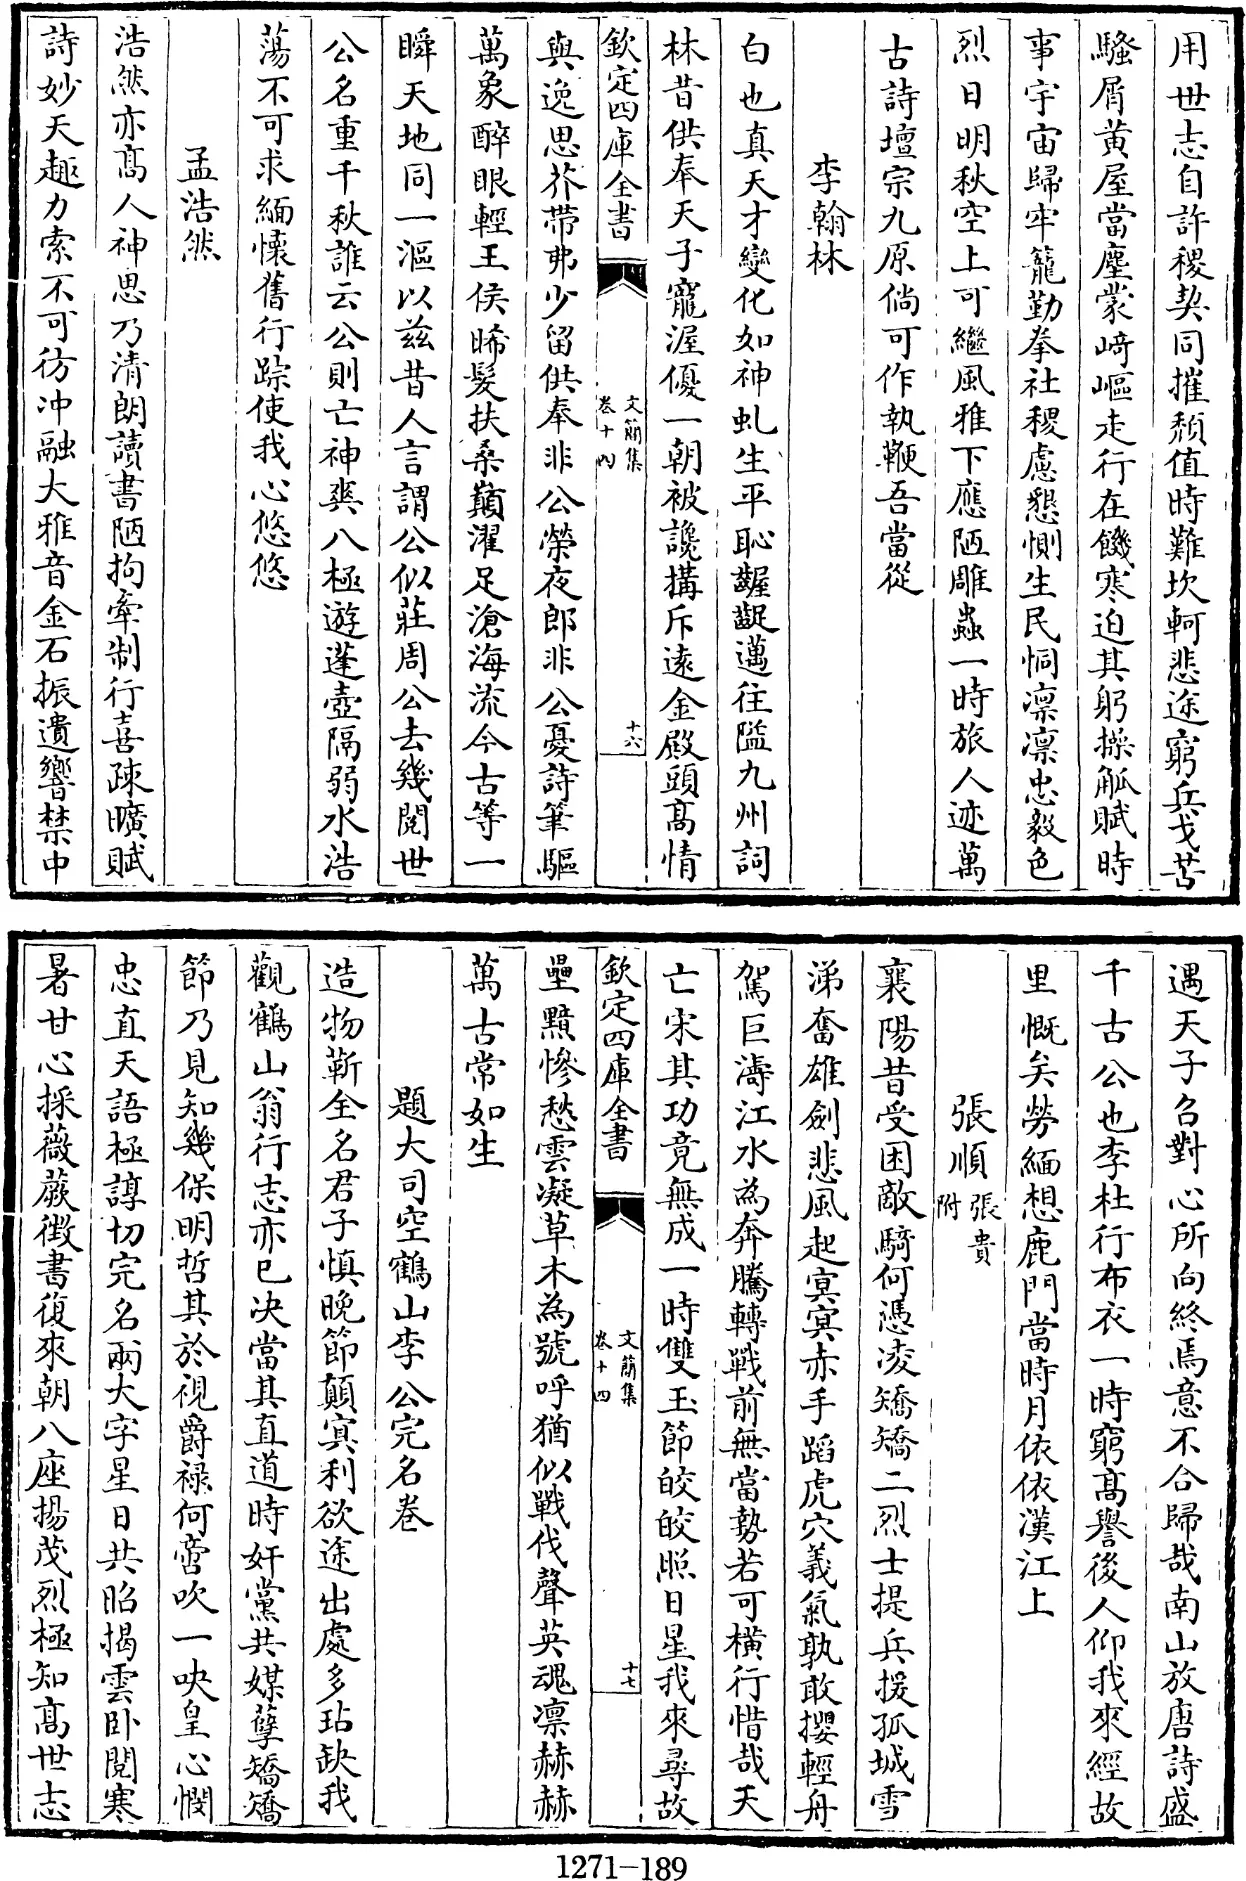 用世志自許稷契同摧頽值時難坎軻悲途窮兵戈苦
騷屑黄屋當塵蒙﨑嶇走行在饑寒迫其躬操觚賦時
事宇宙歸牢籠勤拳社稷慮懇惻生民恫凛凛忠毅色
烈日明秋空上可繼風雅下應陋雕蟲一時旅人迹萬
古詩壇宗九原倘可作執鞭吾當從
李翰林
白也真天才變化如神虬生平恥齷齪邁往隘九州詞
林昔供奉天子寵渥優一朝被讒搆斥逺金殿頭髙情
欽定四庫全書
文簡集
卷十四
十六
與逸思芥帶弗少留供奉非公榮夜郎非公憂詩筆驅
萬象醉眼輕王侯晞髮扶桑巔濯足滄海流今古等一
瞬天地同一漚以兹昔人言謂公似莊周公去幾閱世
公名重千秋誰云公則亡神爽八極遊蓬壺隔弱水浩
蕩不可求緬懷舊行踪使我心悠悠
孟浩然
浩然亦髙人神思乃清朗讀書陋拘牽制行喜踈曠賦
詩妙天趣力索不可彷冲融大雅音金石振遺響禁中
遇天子召對心所向終焉意不合歸哉南山放唐詩盛
千古公也李杜行布衣一時窮髙譽後人仰我來經故
里慨矣勞緬想鹿門當時月依依漢江上
張順張貴附
襄陽昔受困敵騎何憑凌矯矯二烈士提兵援孤城雪
涕奮雄劍悲風起冥冥赤手蹈虎穴義氣孰敢攖輕舟
駕巨濤江水為奔騰轉戰前無當勢若可横行惜哉天
亡宋其功竟無成一時雙玉節皎皎照日星我來尋故
欽定四庫全書
文簡集
卷十四
十七
壘黯慘愁雲凝草木為號呼猶似戰伐聲英魂凛赫赫
萬古常如生
題大司空鶴山李公完名卷
造物靳全名君子慎晩節顛㝠利欲途出處多玷缺我
觀鶴山翁行志亦已决當其直道時奸黨共媒孽矯矯
節乃見知幾保明哲其於視爵禄何啻吹一吷皇心憫
忠直天語極諄切完名兩大字星日共昭揭雲卧閱寒
暑甘心採薇蕨徴書復來朝八座揚茂烈極知髙世志
1271-189